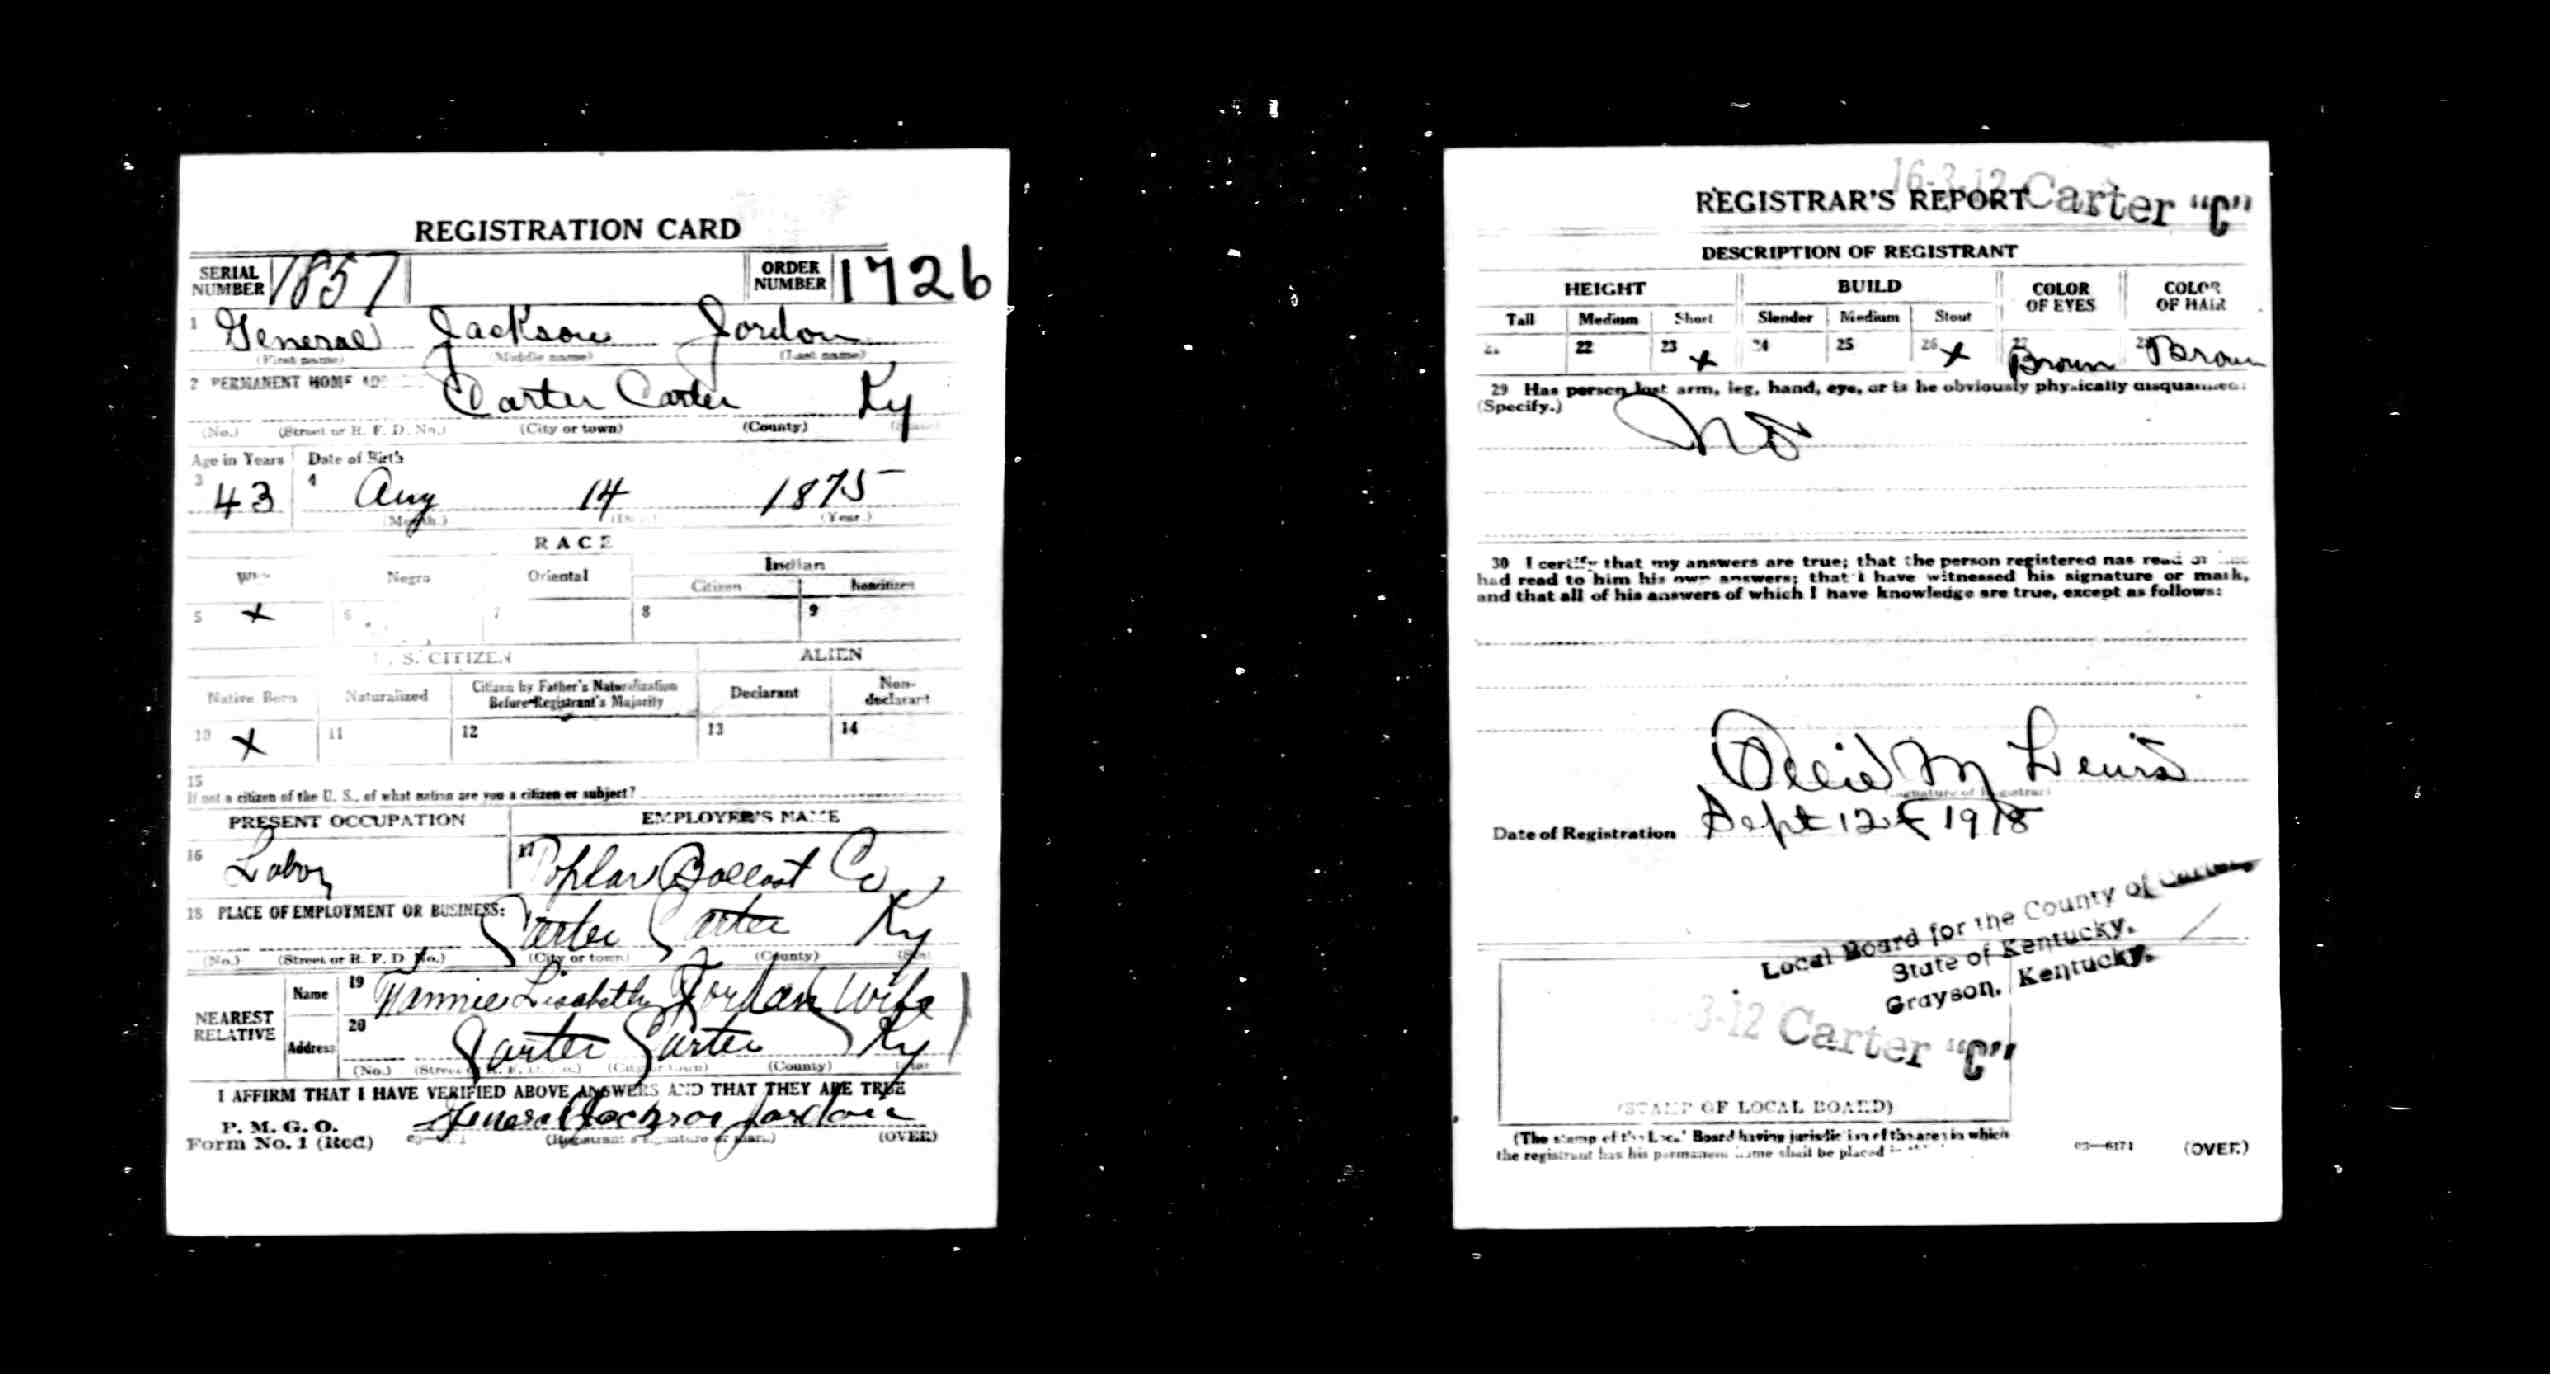 REGISTRATION CARD
SERIAL NUMBER 1857 ORDER NUMBER 1726
1 General Jackson Jordon
(First name) (Middle name) (Last name)
2 PERMANENT HOME Carter Carter Ky
(No.) (Street or R. F. D. No.) (City or town) (County)
Age in Years Date of Birth
3 43 4 Aug 14 1875
(Month.) (Year.)
RACE
Negro Oriental Indian
Citizen Noncitizen
5 X 6 7 8 9
S. CITIZEN ALIEN
Native Born Naturalized Citizen by Father's Naturalization Before Registrant's Majority Declarant Non-declarant
10 X 11 12 13 14
15
If not a citizen of the U. S., of what nation are you a citizen or subject?
PRESENT OCCUPATION EMPLOYER'S NAME
16 Labor 17 Poplar Ballast Co
18 PLACE OF EMPLOYMENT OR BUSINESS:
Carter Carter Ky
(No.) (Street or R. F. D. No.) (City or town) (County)
NEAREST RELATIVE Name 19 Lisabeth Jordan Wife
Address 20 Carter Carter Ky
(No.) (City or town) (County)
I AFFIRM THAT I HAVE VERIFIED ABOVE ANSWERS AND THAT THEY ARE TRUE
P. M. G. O.
Form No. 1 (Red) General Jackson Jordon
(Registrant's signature or mark.) (OVER)
16-3-12 Carter "C"
REGISTRAR'S REPORT
DESCRIPTION OF REGISTRANT
HEIGHT BUILD COLOR OF EYES COLOR OF HAIR
Tall Medium Short Slender Medium Stout
21 22 23 X 24 25 26 X 27 Brown 28 Brown
29 Has person lost arm, leg, hand, eye, or is he obviously physically disqualified?
(Specify.)
No
30 I certify that my answers are true; that the person registered has read or
had read to him his own answers; that I have witnessed his signature or mark,
and that all of his answers of which I have knowledge are true, except as follows:
Ollie M Lewis
(Signature of Registrar)
Date of Registration Sept 12 1918
Local Board for the County of Carter,
State of Kentucky.
Grayson, Kentucky.
3-12 Carter "C"
(STAMP OF LOCAL BOARD)
(The stamp of the Local Board having jurisdiction of the area in which
the registrant has his permanent home shall be placed
03—6171 (OVER)